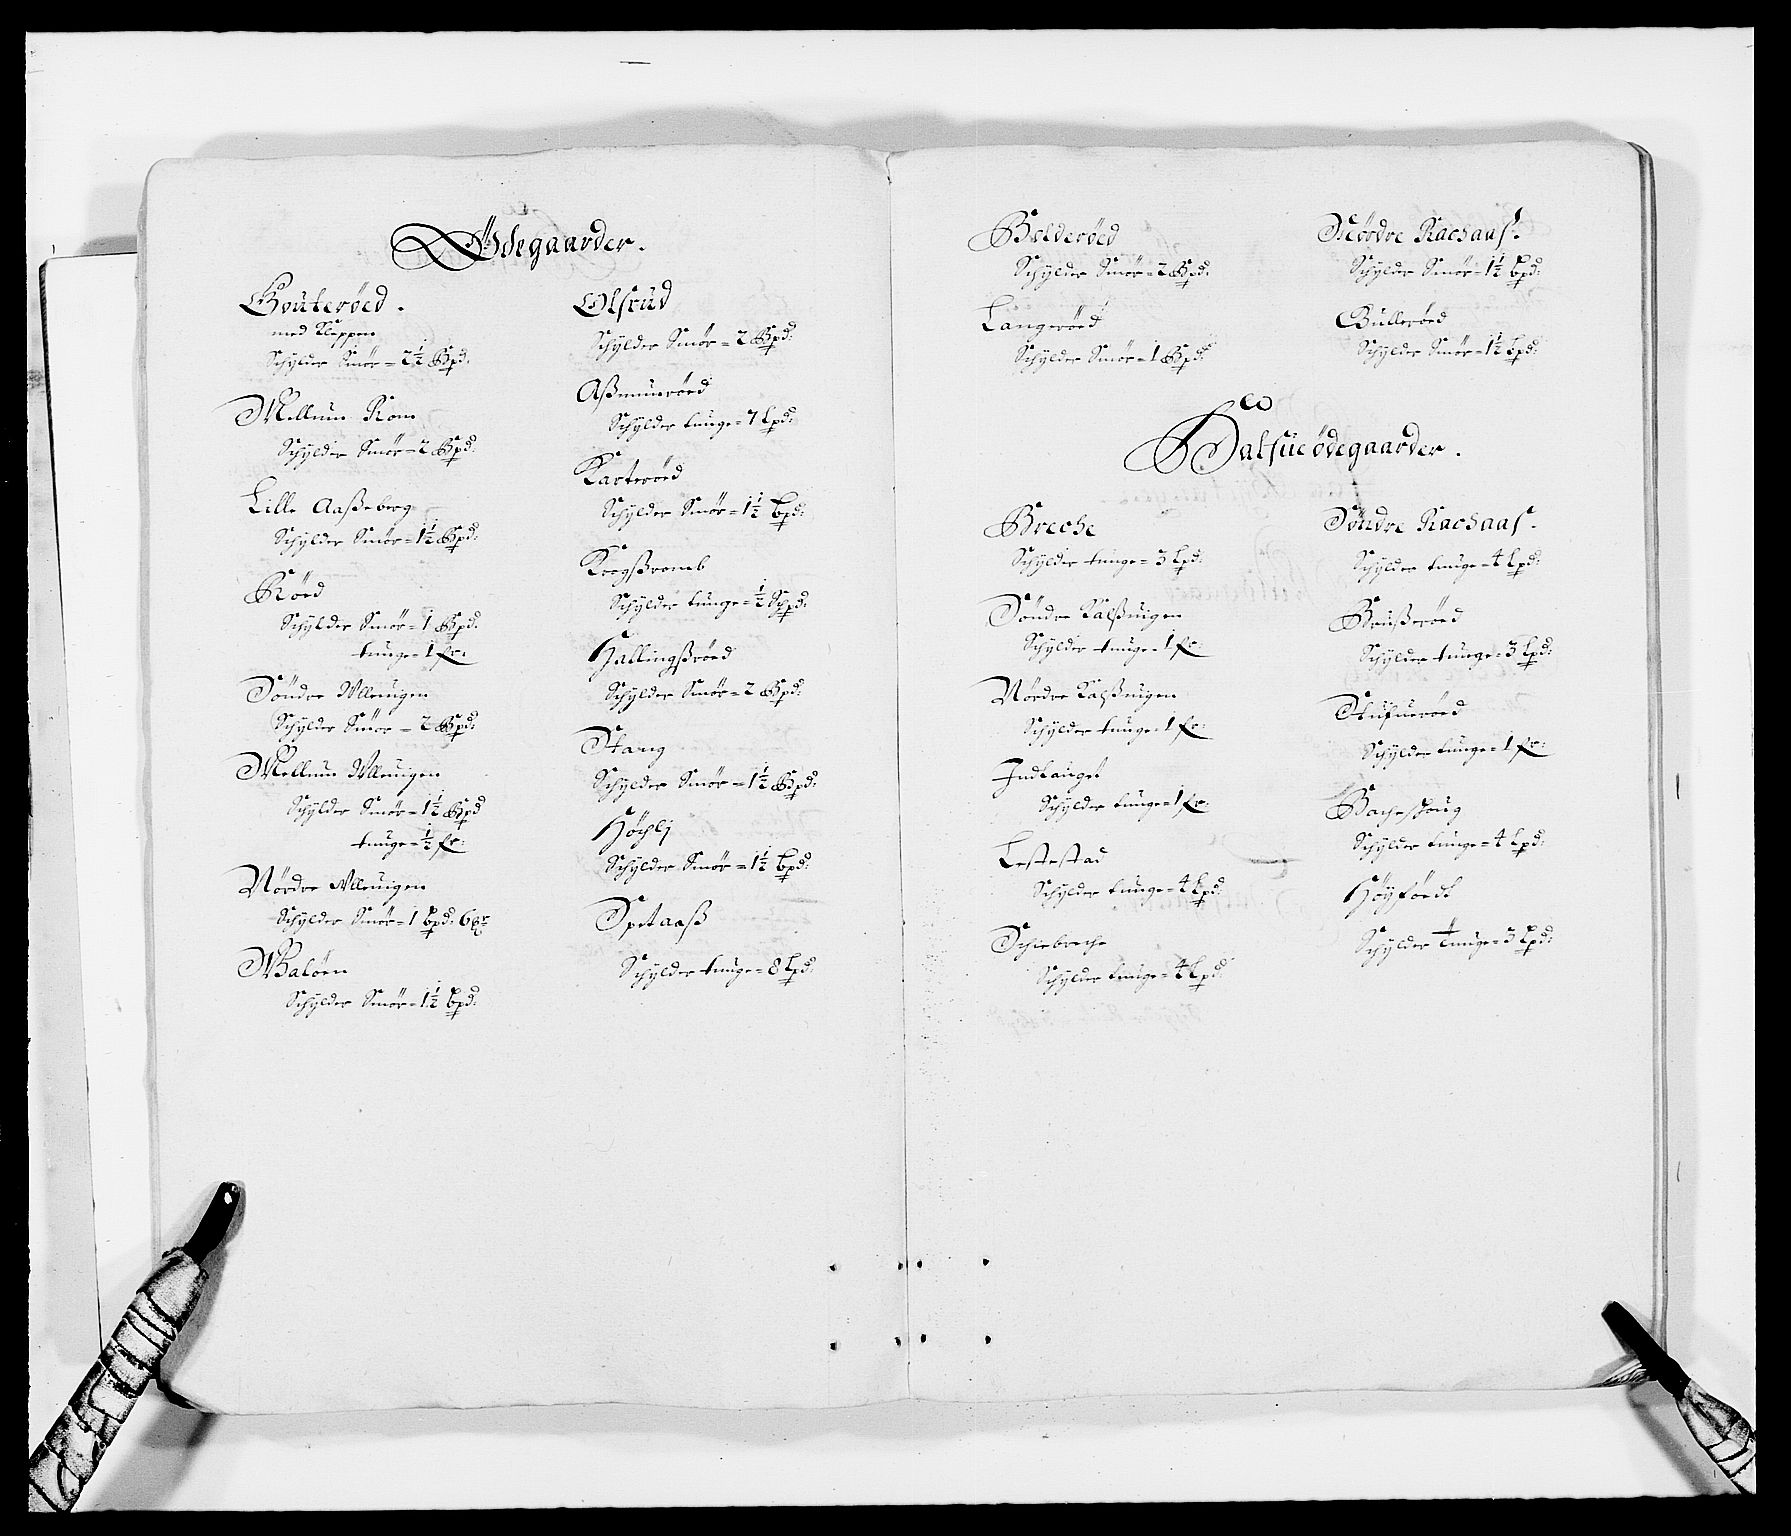 Ödegaarder.
Gouteröed.
med Kleppen
Schylder Smör = 2½ Bpd:
Mellum Rom
Schylder Smör = 2 Bpd:
Lille Aaßeberg
Schylder Smör = 1½ Bpd:
Röed
Schylder Smör = 1 Bpd:
tunge = 1 fr:
Söndre Ulleuigen
Schylder Smör = 2 Bpd:
Mellum Ulleuigen
Schylder Smör = 1½ Bpd
tunge = ½ fr:
Nördre Ulleuigen
Schylder Smör = 1 Bpd: 6
Waløen
Schylder Smör = 1½ Bpd:
Olsrud
Schylder Smör = 2 Bpd:
Aßmunröed
Schylder tunge = 7 Lpd:
Karteröed
Schylder Smör = 1½ Bpd:
Krogßromb
Schylder tunge = ½ Schpd:
Hallingßröed
Schylder Smör = 2 Bpd:
Stang
Schylder Smör = 1½ Bpd:
Höchlj
Schylder Smör = 1½ Bpd:
Spetaaß
Schylder tunge = 8 Lpd:
Bølderöed
Schylder Smör = 2 Bpd:
Langeröed
Schylder Smör = 1 Bpd:
Nördre Rachaas.
Schylder Smör = 1½ Bpd:
Bulleröed
Schylder Smör = 1½ Lpd:
Halfueödegaarder.
Breche
Schylder tunge = 3 Lpd:
Söndre Kalßuigen
Schylder tunge = 1 fr:
Nördre Kalßuigen
Schylder tunge = 1 fr:
Indtanget
Schylder tunge = 1 fr:
Lestestad
Schylder tunge = 4 Lpd:
Schiebreche
Schylder tunge = 4 Lpd:
Söndre Rachaas.
Schylder tunge = 4 Lpd:
Brußeröed
Schylder tunge = 3 Lpd:
Stufueröed
Schylder tunge = 1 fr:
Bacheschoug
Schylder tunge = 4 Lpd:
Höyfödt
Schylder tunge = 3 Lpd: